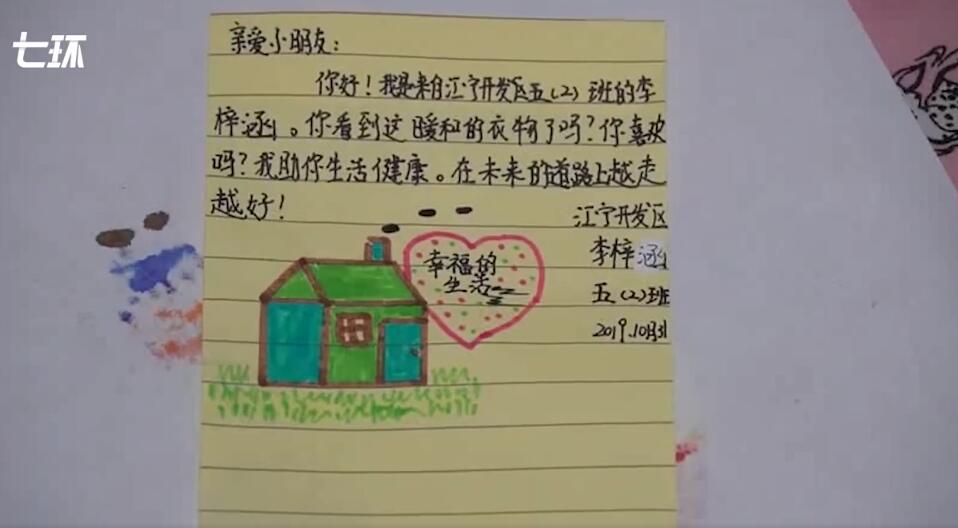 七环
亲爱小朋友：
你好！我是来自江宁开发区五（2）班的李
梓涵。你看到这暖和的衣物了吗？你喜欢
吗？我助你生活健康。在未来的道路上越走
越好！
江宁开发区
李梓涵
五（2）班
2019.10月31
幸福的
生活